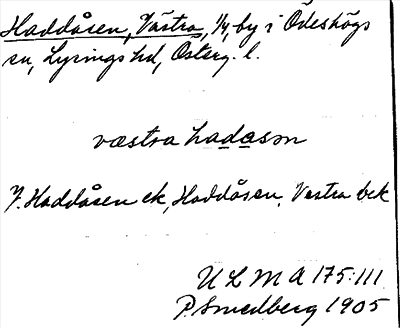 Haddåsen, Västra, 1/4, by i Ödeshögs
sn, Lysings hd, Österg. l.
væstra hadasən
Haddåsen ek, Haddåsen, Vestra bek
U L M A 175:111
P. Smedberg 1905